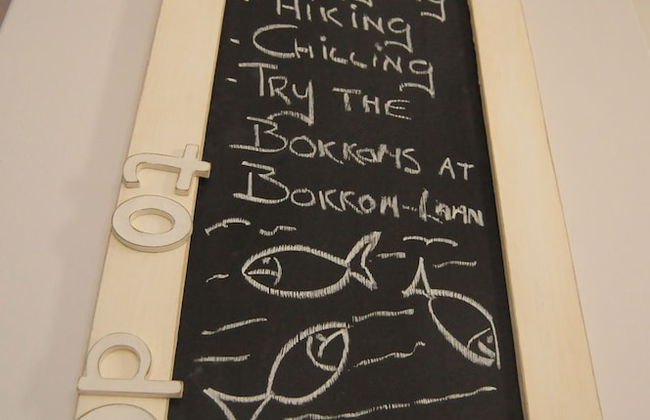 Hiking
- Chilling
- Try the
Bokkoms at
Bokkom-Laan
to do